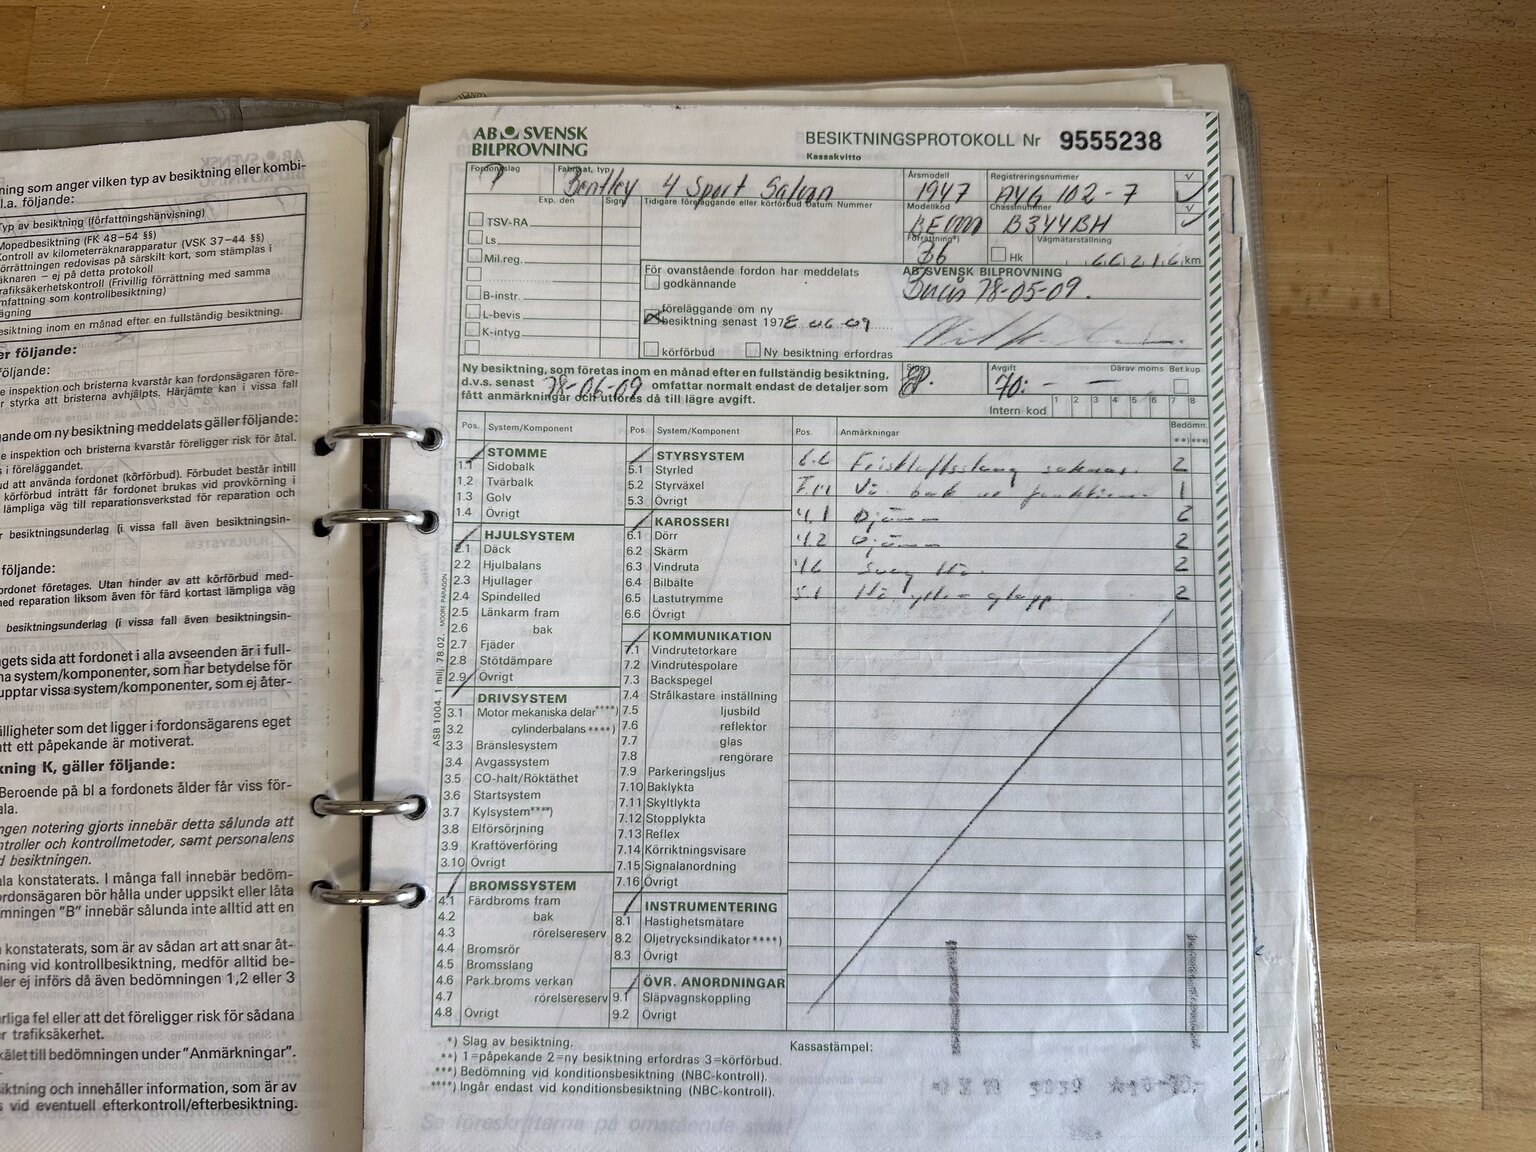 ning som anger vilken typ av besiktning eller kombi-
l.a. följande:
Typ av besiktning (författningshänvisning)
Mopedbesiktning (FK 48–54 §§)
Kontroll av kilometerräknarapparatur (VSK 37–44 §§)
örrättningen redovisas på särskilt kort, som stämplas i
äknaren – ej på detta protokoll
rafiksäkerhetskontroll (Frivillig förrättning med samma
mfattning som kontrollbesiktning)
ägning
esiktning inom en månad efter en fullständig besiktning.
er följande:
följande:
e inspektion och bristerna kvarstår kan fordonsägaren före-
r styrka att bristerna avhjälpts. Härjämte kan i vissa fall
gande om ny besiktning meddelats gäller följande:
e inspektion och bristerna kvarstår föreligger risk för åtal.
s i föreläggandet.
ud att använda fordonet (körförbud). Förbudet består intill
körförbud inträtt får fordonet brukas vid provkörning i
lämpliga väg till reparationsverkstad för reparation och
r besiktningsunderlag (i vissa fall även besiktningsin-
följande:
ordonet företages. Utan hinder av att körförbud med-
med reparation liksom även för färd kortast lämpliga väg
besiktningsunderlag (i vissa fall även besiktningsin-
gets sida att fordonet i alla avseenden är i full-
na system/komponenter, som har betydelse för
upptar vissa system/komponenter, som ej åter-
älligheter som det ligger i fordonsägarens eget
tt ett påpekande är motiverat.
kning K, gäller följande:
Beroende på bl a fordonets ålder får viss för-
ala.
ngen notering gjorts innebär detta sålunda att
ntroller och kontrollmetoder, samt personalens
d besiktningen.
ala konstaterats. I många fall innebär bedöm-
ordonsägaren bör hålla under uppsikt eller låta
ömningen "B" innebär sålunda inte alltid att en
konstaterats, som är av sådan art att snar åt-
ning vid kontrollbesiktning, medför alltid be-
ler ej införs då även bedömningen 1,2 eller 3
rliga fel eller att det föreligger risk för sådana
r trafiksäkerhet.
kälet till bedömningen under "Anmärkningar".
siktning och innehåller information, som är av
s vid eventuell efterkontroll/efterbesiktning.
AB SVENSK
BILPROVNING
BESIKTNINGSPROTOKOLL Nr 9555238
Kassakvitto
Fordonsslag Fabrikat, typ Årsmodell Registreringsnummer
Bentley 4 Sport Saloon 1947 AYG 102-7
Exp. den Sign Tidigare föreläggande eller körförbud Datum Nummer Modellkod Chassinummer
BE0000 B344BH
Förrättning*) Hk Vägmätarställning
B6 66216 km
TSV-RA
Ls
Mil.reg.
B-instr.
L-bevis
K-intyg
För ovanstående fordon har meddelats
godkännande
föreläggande om ny
besiktning senast 1978 06 09
körförbud Ny besiktning erfordras
AB SVENSK BILPROVNING
Borås 78-05-09.
Ny besiktning, som företas inom en månad efter en fullständig besiktning,
d.v.s. senast 78-06-09 omfattar normalt endast de detaljer som
fått anmärkningar och utföres då till lägre avgift.
Sign Avgift Därav moms Bet kup.
70: – –
Intern kod 1 2 3 4 5 6 7 8
Pos. System/Komponent Pos. System/Komponent Pos. Anmärkningar Bedömn.
**) ***)
STOMME
1.1 Sidobalk
1.2 Tvärbalk
1.3 Golv
1.4 Övrigt
HJULSYSTEM
2.1 Däck
2.2 Hjulbalans
2.3 Hjullager
2.4 Spindelled
2.5 Länkarm fram
2.6 bak
2.7 Fjäder
2.8 Stötdämpare
2.9 Övrigt
DRIVSYSTEM
3.1 Motor mekaniska delar****)
3.2 cylinderbalans ****)
3.3 Bränslesystem
3.4 Avgassystem
3.5 CO-halt/Röktäthet
3.6 Startsystem
3.7 Kylsystem****)
3.8 Elförsörjning
3.9 Kraftöverföring
3.10 Övrigt
BROMSSYSTEM
4.1 Färdbroms fram
4.2 bak
4.3 rörelsereserv
4.4 Bromsrör
4.5 Bromsslang
4.6 Park.broms verkan
4.7 rörelsereserv
4.8 Övrigt
STYRSYSTEM
5.1 Styrled
5.2 Styrväxel
5.3 Övrigt
KAROSSERI
6.1 Dörr
6.2 Skärm
6.3 Vindruta
6.4 Bilbälte
6.5 Lastutrymme
6.6 Övrigt
KOMMUNIKATION
7.1 Vindrutetorkare
7.2 Vindrutespolare
7.3 Backspegel
7.4 Strålkastare inställning
7.5 ljusbild
7.6 reflektor
7.7 glas
7.8 rengörare
7.9 Parkeringsljus
7.10 Baklykta
7.11 Skyltlykta
7.12 Stopplykta
7.13 Reflex
7.14 Körriktningsvisare
7.15 Signalanordning
7.16 Övrigt
INSTRUMENTERING
8.1 Hastighetsmätare
8.2 Oljetrycksindikator ****)
8.3 Övrigt
ÖVR. ANORDNINGAR
9.1 Släpvagnskoppling
9.2 Övrigt
6.6 Friskluftsslang saknas. 2
bak funktion 1
4.1 Ojämn 2
4.2 Ojämn 2
4.6 Svag 2
5.1 yttre glapp 2
ASB 1004. 1 milj. 78.02. MOORE PARAGON
*) Slag av besiktning.
**) 1=påpekande 2=ny besiktning erfordras 3=körförbud.
***) Bedömning vid konditionsbesiktning (NBC-kontroll).
****) Ingår endast vid konditionsbesiktning (NBC-kontroll).
Kassastämpel:
Se föreskrifterna på omstående sida!